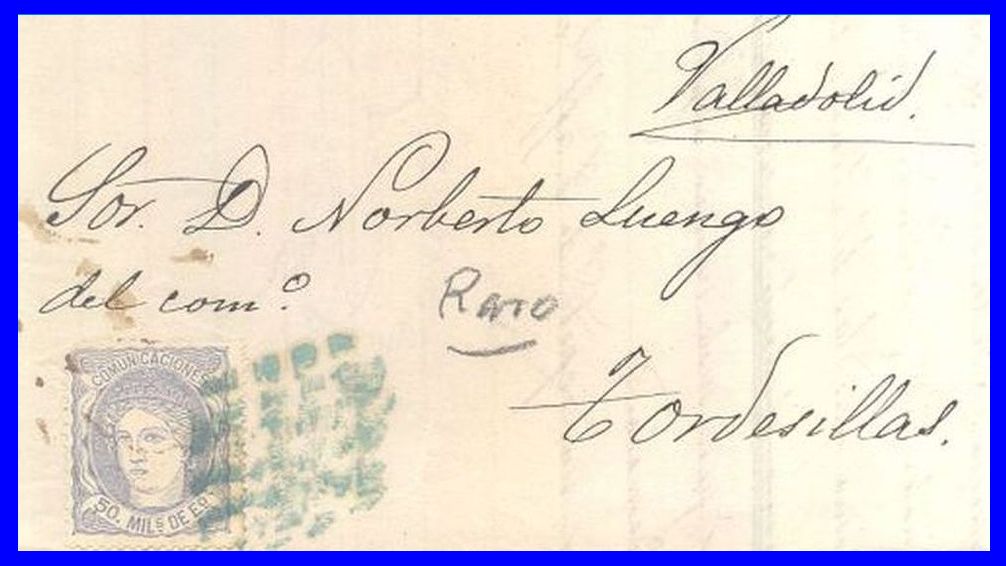 Valladolid.
Sor. D. Norberto Luengo
del com.º
Raro
Tordesillas.
COMUNICACIONES
50. MILS DE E.